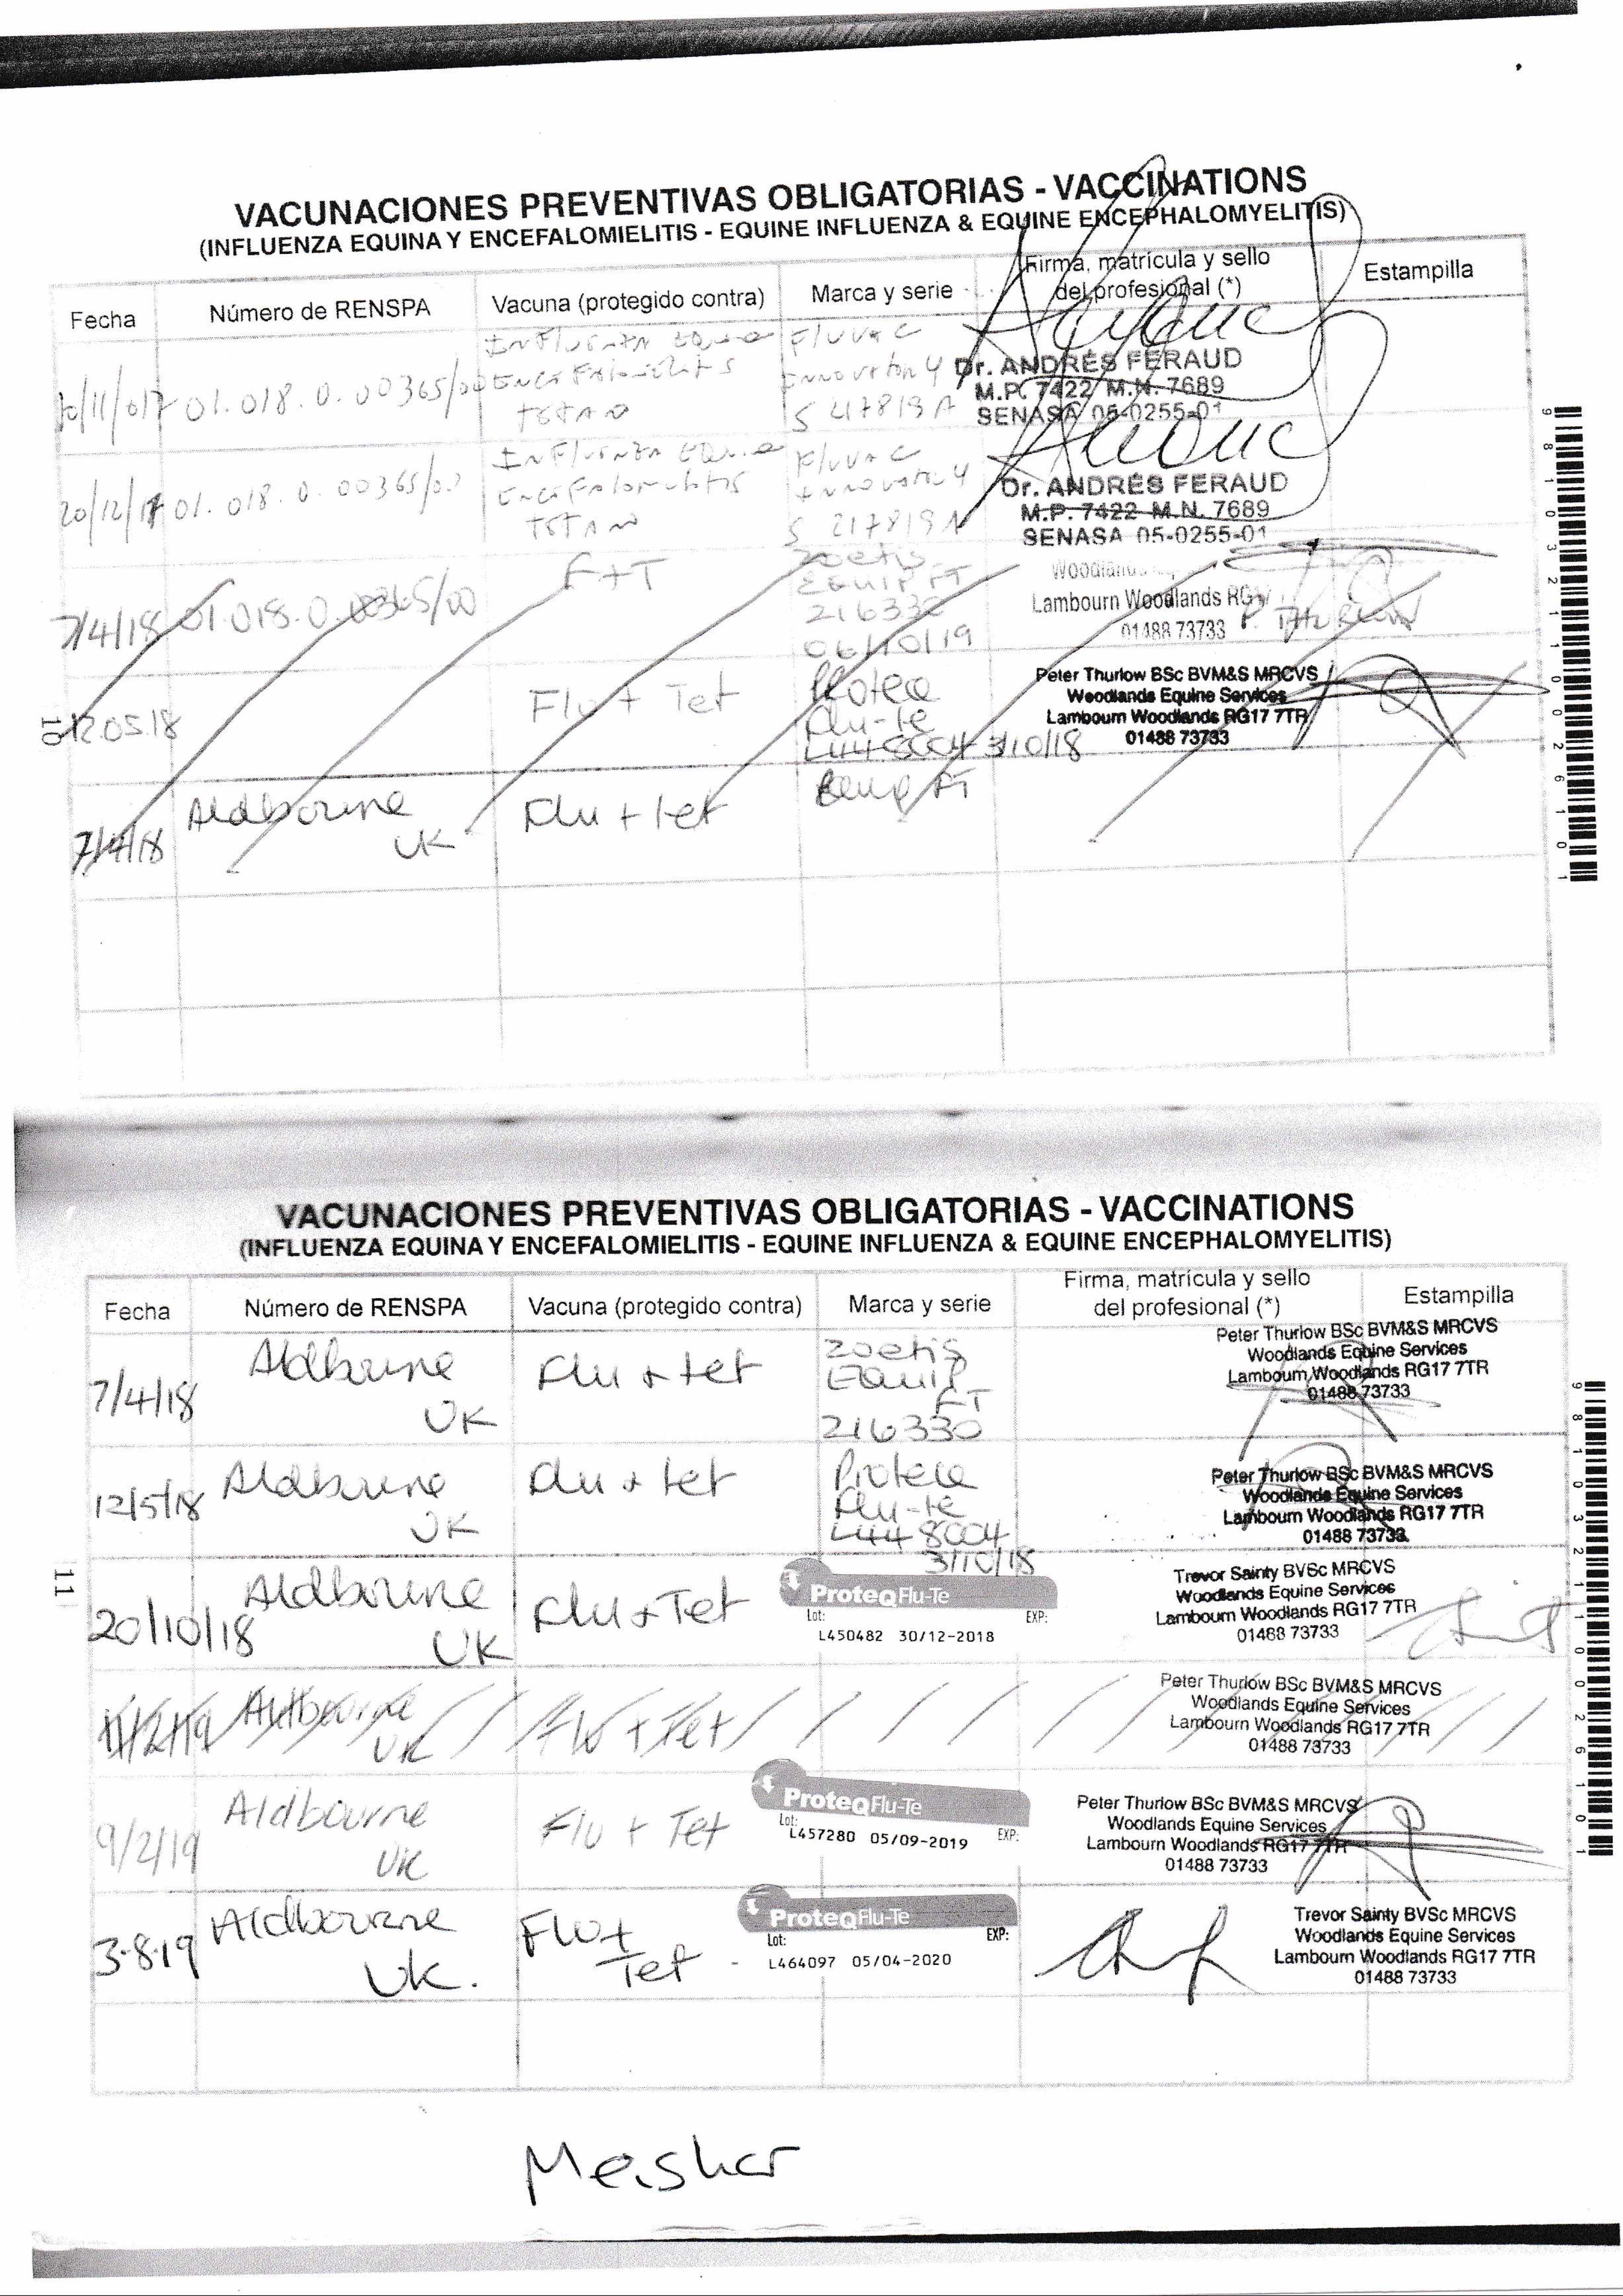 VACUNACIONES PREVENTIVAS OBLIGATORIAS - VACCINATIONS
(INFLUENZA EQUINA Y ENCEFALOMIELITIS - EQUINE INFLUENZA & EQUINE ENCEPHALOMYELITIS)
Fecha Número de RENSPA Vacuna (protegido contra) Marca y serie Firma, matrícula y sello del profesional (*) Estampilla
/11/017 01.018.0.00365/00 INFLUENZA TETANO FLUVAC INNOVATOR 4 S 217819A
Dr. ANDRÉS FERAUD
M.P. 7422 M.N. 7689
SENASA 05-0255-01
20/12/17 01.018.0.00365/00 INFLUENZA TETANO FLUVAC INNOVATOR 4 S 217819A
Dr. ANDRÉS FERAUD
M.P. 7422 M.N. 7689
SENASA 05-0255-01
7/4/18 01.018.0.00365/00 F+T Zoetis
EQUIP FT
216330
06/10/19
Lambourn Woodlands RG
01488 73733
12.05.18 Flu + Tet Proteq
Flu-te
L448004 3/10/18
Peter Thurlow BSc BVM&S MRCVS
Woodlands Equine Services
Lambourn Woodlands RG17 7TR
01488 73733
7/4/18 Aldbourne UK Flu + tet Equip FT
10
9 8 1 0 3 2 1 1 0 0 2 6 1 0 1
VACUNACIONES PREVENTIVAS OBLIGATORIAS - VACCINATIONS
(INFLUENZA EQUINA Y ENCEFALOMIELITIS - EQUINE INFLUENZA & EQUINE ENCEPHALOMYELITIS)
Fecha Número de RENSPA Vacuna (protegido contra) Marca y serie Firma, matrícula y sello del profesional (*) Estampilla
7/4/18 Aldbourne UK Flu + tet Zoetis
Equip
FT
216330
Peter Thurlow BSc BVM&S MRCVS
Woodlands Equine Services
Lambourn Woodlands RG17 7TR
01488 73733
12/5/18 Aldbourne UK Flu + tet Proteq
Flu-te
L448004
3/10/18
Peter Thurlow BSc BVM&S MRCVS
Woodlands Equine Services
Lambourn Woodlands RG17 7TR
01488 73733
20/10/18 Aldbourne UK Flu + Tet ProteqFlu-Te
Lot: EXP:
L450482 30/12-2018
Trevor Sainty BVSc MRCVS
Woodlands Equine Services
Lambourn Woodlands RG17 7TR
01488 73733
Aldbourne UK Flu + Tet
Peter Thurlow BSc BVM&S MRCVS
Woodlands Equine Services
Lambourn Woodlands RG17 7TR
01488 73733
9/2/19 Aldbourne UK Flu + Tet ProteqFlu-Te
Lot: EXP:
L457280 05/09-2019
Peter Thurlow BSc BVM&S MRCVS
Woodlands Equine Services
Lambourn Woodlands RG17 7TR
01488 73733
3.8.19 Aldbourne UK. Flu + Tet ProteqFlu-Te
Lot: EXP:
L464097 05/04-2020
Trevor Sainty BVSc MRCVS
Woodlands Equine Services
Lambourn Woodlands RG17 7TR
01488 73733
11
9 8 1 0 3 2 1 1 0 0 2 6 1 0 1